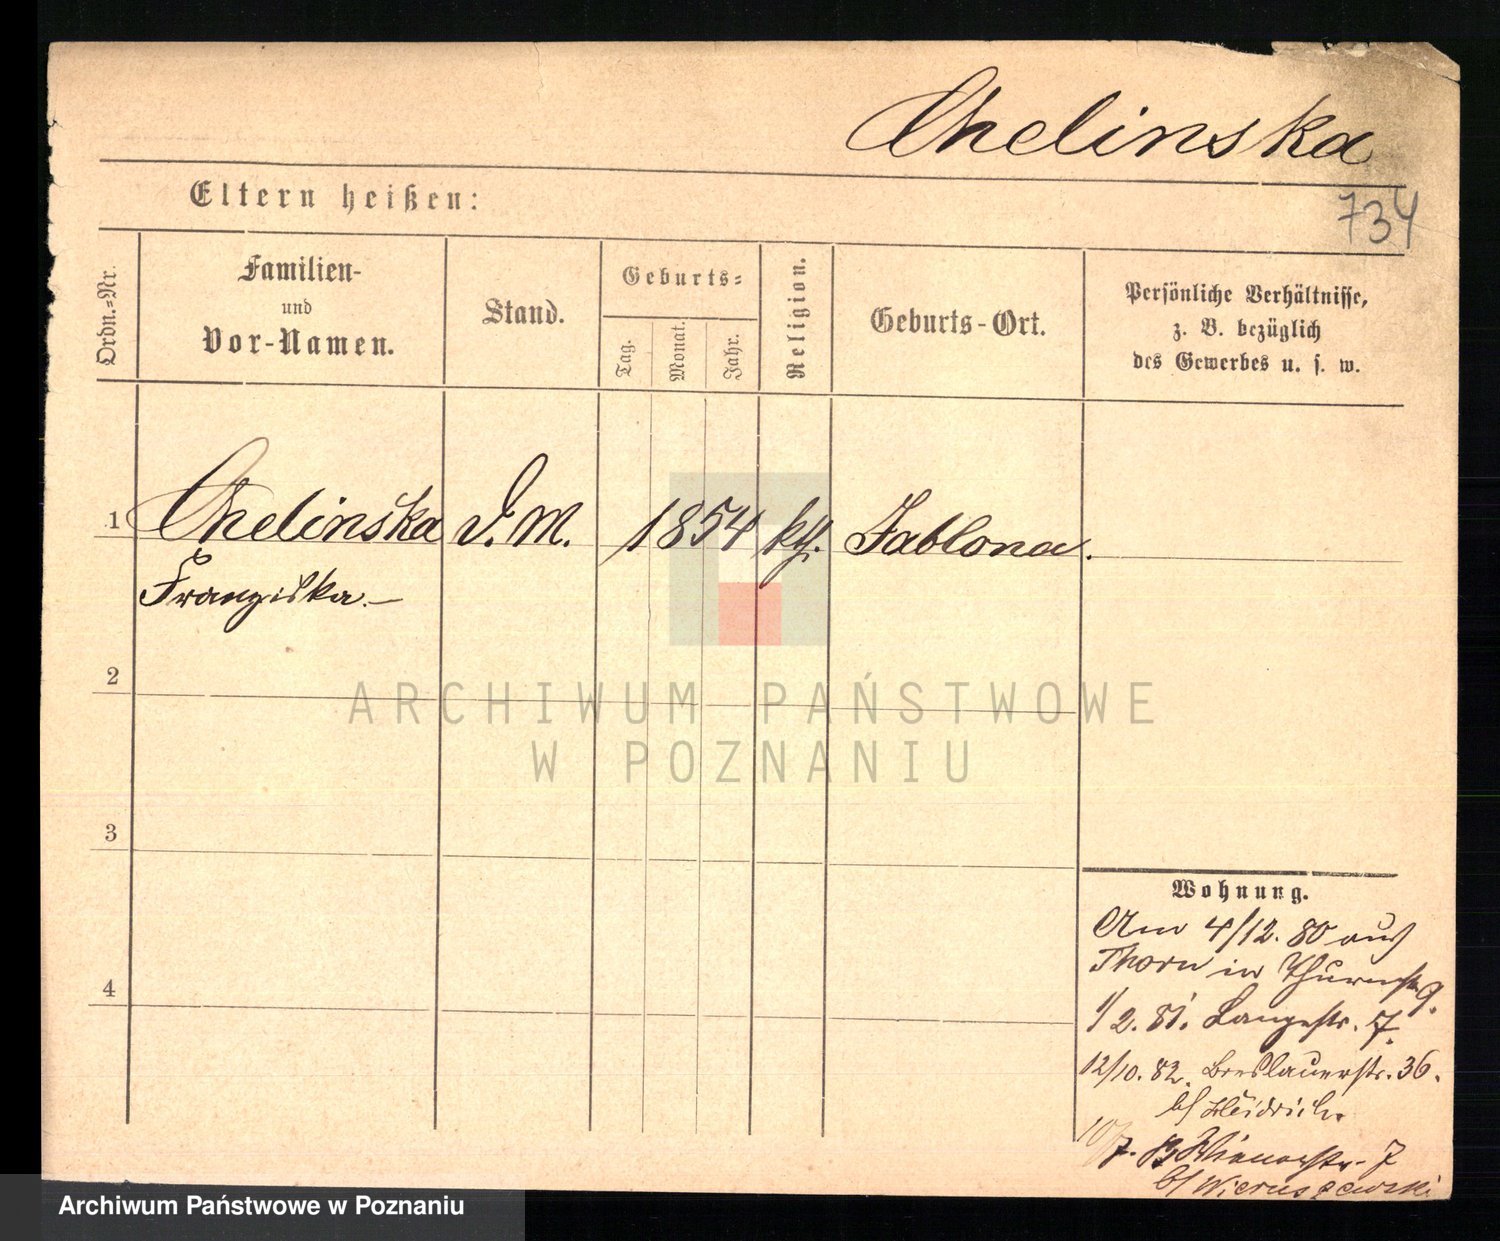 Chelinska
734
Eltern heißen:
Ordn.-Nr.
Familien-
und
Vor-Namen.
Stand.
Geburts-
Tag.
Monat.
Jahr.
Religion.
Geburts-Ort.
Persönliche Verhältnisse,
z. B. bezüglich
des Gewerbes u. s. w.
1 Chelinska D. M. 1854 kth. Jablona.
Franziska.—
2
3
4
ARCHIWUM PAŃSTWOWE
W POZNANIU
Wohnung.
Am 4/12. 80 aus
Thorn in Thurmstr. 9.
1/2. 81. Langestr. 7.
12/10. 82. Breslauerstr. 36.
b/ Heidrich.
10/7. 83 Wienerstr. 7
b/ Wieruszewski
Archiwum Państwowe w Poznaniu